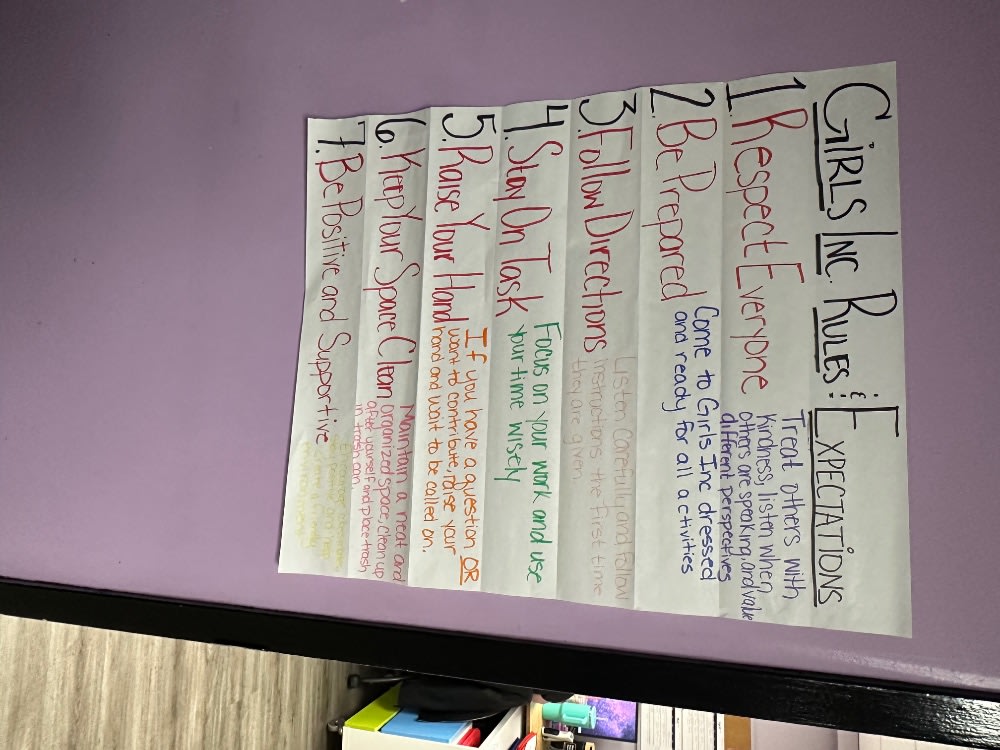 GIRLS INC. RULES & EXPECTATIONS
1. Respect Everyone
Treat others with
kindness, listen when
others are speaking, and value
different perspectives
2. Be Prepared
Come to Girls Inc dressed
and ready for all activities
3. Follow Directions
Listen carefully and follow
instructions the first time
they are given.
4. Stay On Task
Focus on your work and use
your time wisely
5. Raise Your Hand
If you have a question OR
want to contribute, raise your
hand and wait to be called on.
6. Keep Your Space Clean
Maintain a neat and
organized space, clean up
after yourself and place trash
in trash can.
7. Be Positive and Supportive